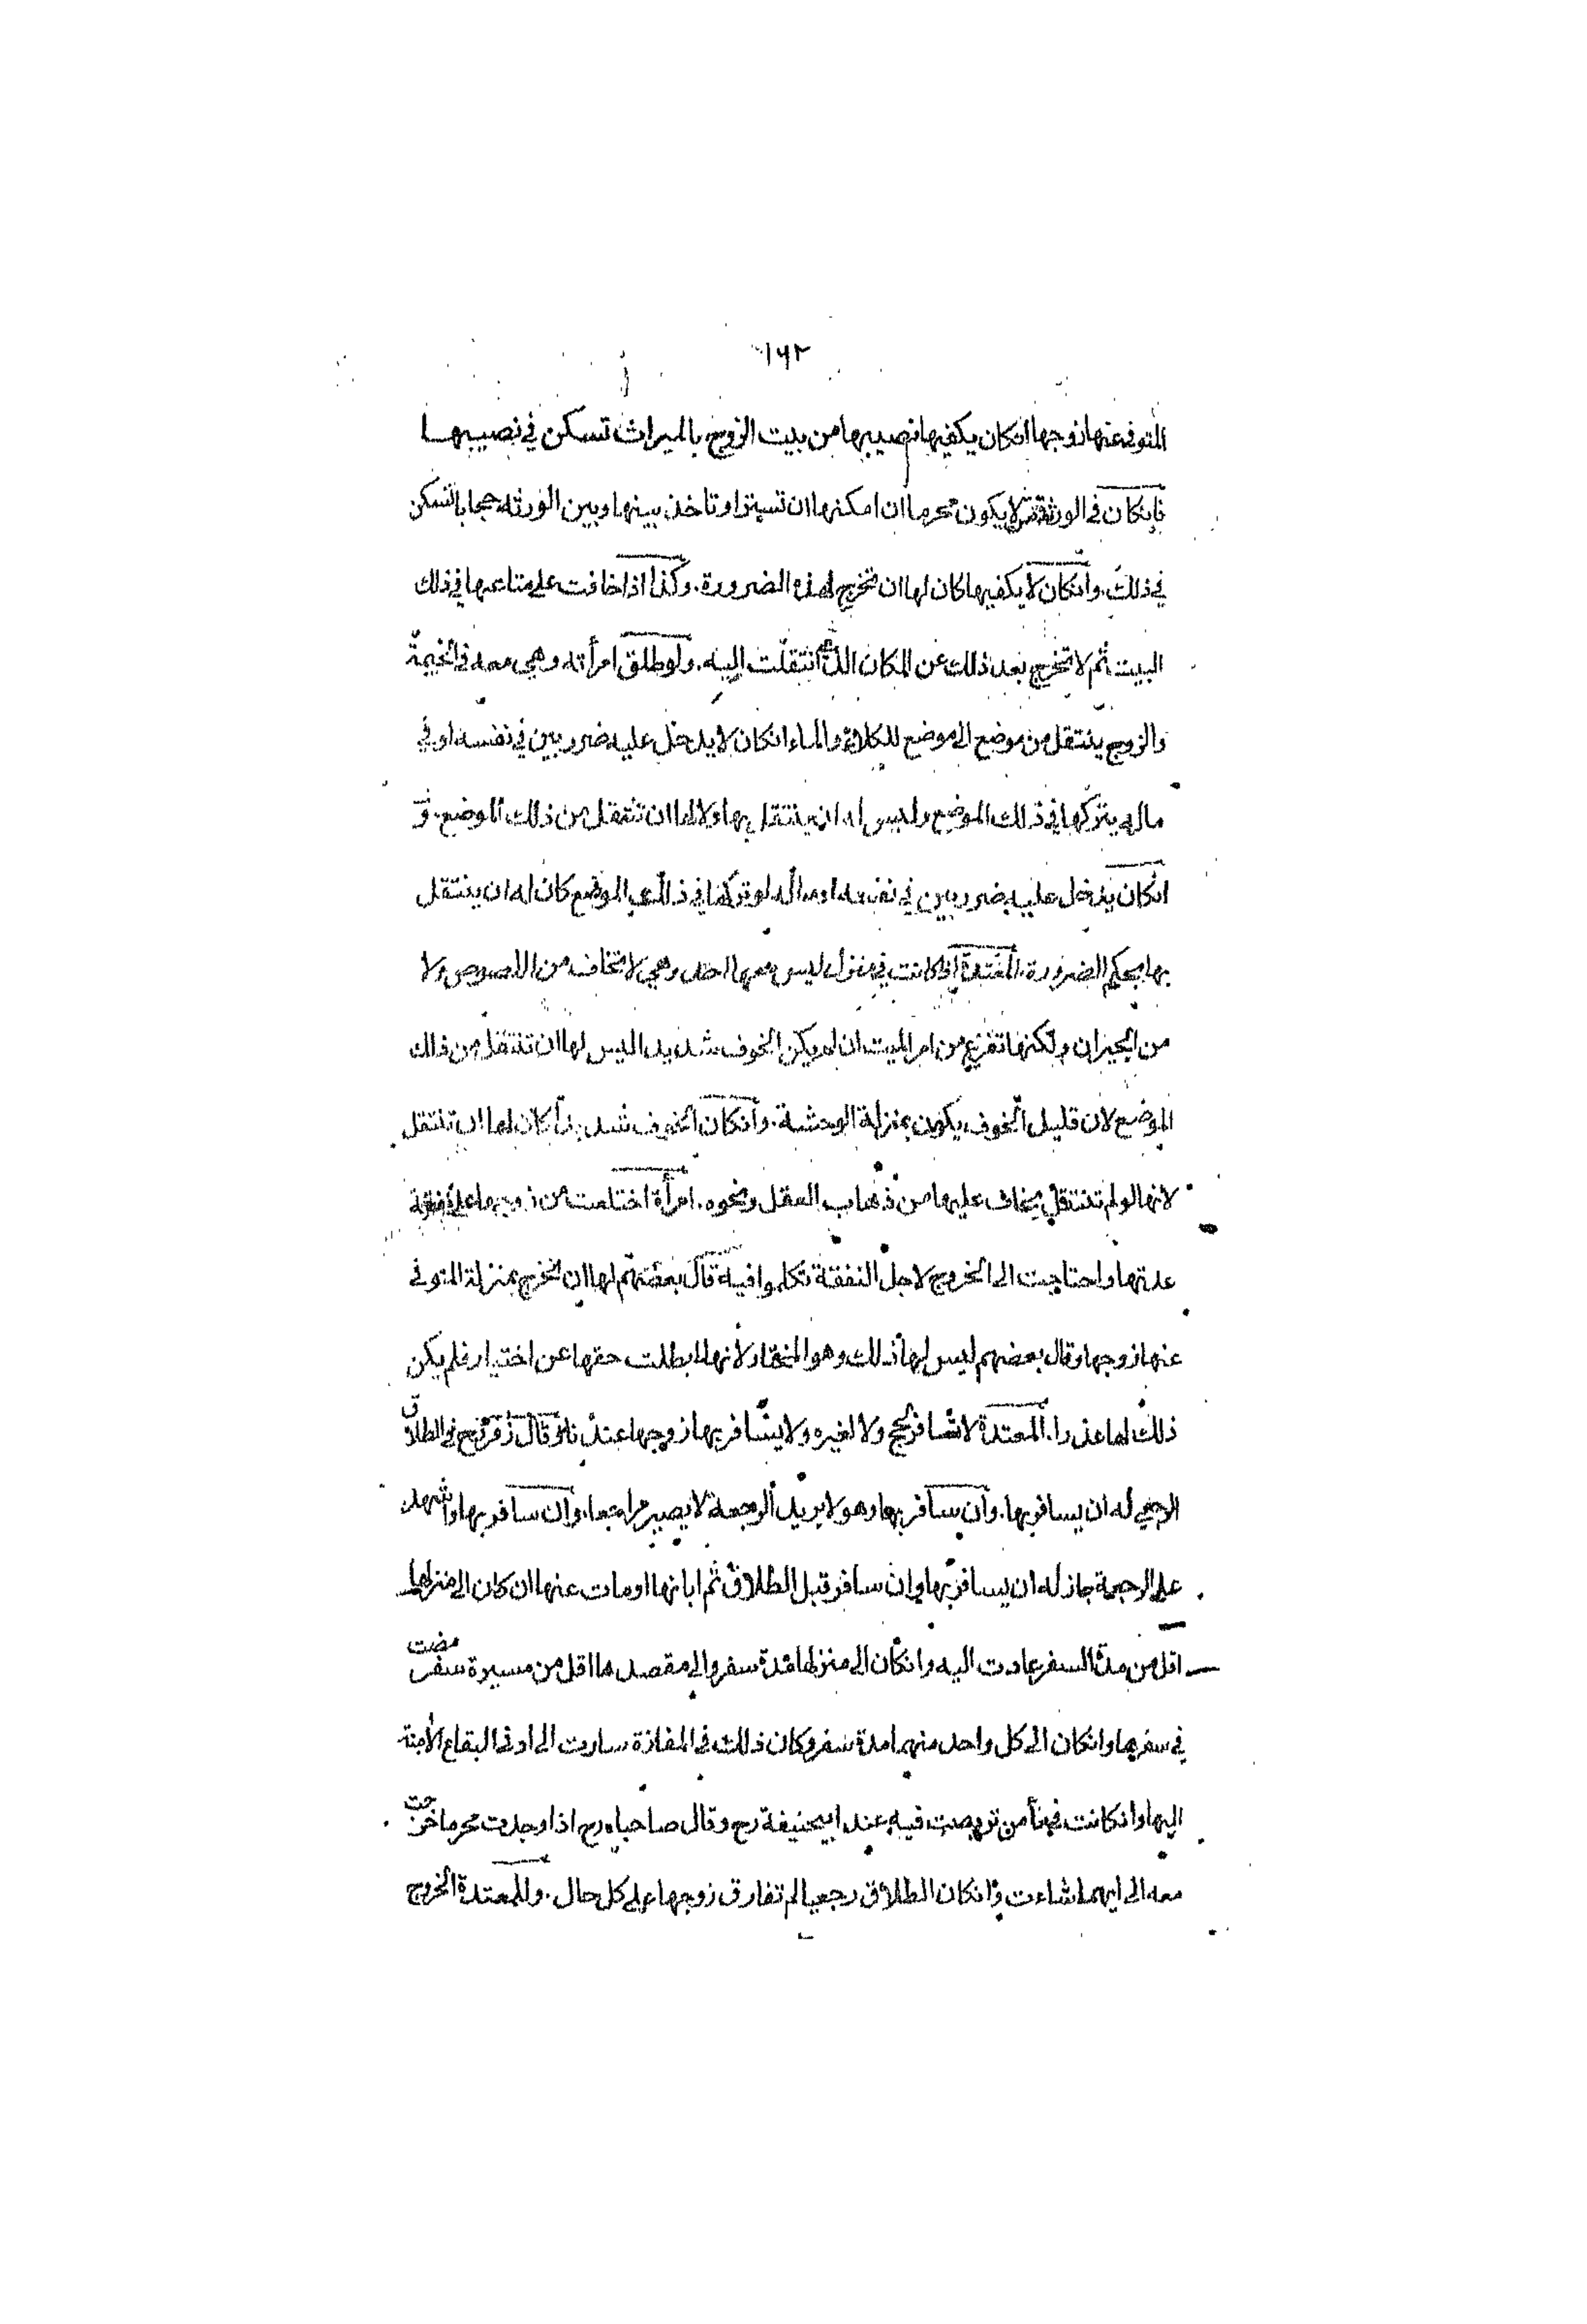 ١٦٢
المتوفى عنها زوجها انكان يكفيها نصيبها من بيت الزوج بالميراث تسكن في نصيبها
فانكان في الورثة من لا يكون محرما ان امكنها ان تستتر او تاخذ بينها وبين الورثة حجابا تسكن
في ذلك. وانكان لا يكفيها كان لها ان تخرج لهذه الضرورة. وكذا اذا خافت على متاعها في ذلك
البيت ثم لا تخرج بعد ذلك عن المكان الذي انتقلت اليه. ولو طلق امرأته وهي معه في الخيمة
والزوج ينتقل من موضع الى موضع للكلاء والماء انكان لا يدخل عليه ضرر بين في نفسه او في
ماله يتركها في ذلك الموضع وليس له ان ينتقل بها ولا لها ان تنتقل من ذلك الموضع. و
انكان يدخل عليه ضرر بين في نفسه او ماله لو تركها في ذلك الموضع كان له ان ينتقل
بها بحكم الضرورة. المعتدة اذا كانت في منزل ليس معها احد وهي لا تخاف من اللصوص ولا
من الجيران ولكنها تفزع من امر الميت ان لم يكن الخوف شديدا ليس لها ان تنتقل من ذلك
الموضع لان قليل الخوف يكون بمنزلة الوحشة. وانكان الخوف شديدا كان لها ان تنتقل
لانها لو لم تنتقل يخاف عليها من ذهاب العقل ونحوه. امرأة اختلعت من زوجها على نفقة
عدتها واحتاجت الى الخروج لاجل النفقة تكلموا فيه قال بعضهم لها ان تخرج بمنزلة المتوفى
عنها زوجها وقال بعضهم ليس لها ذلك وهو المختار لانها ابطلت حقها عن اختيار فلم يكن
ذلك لها عذرا. المعتدة لا تسافر لحج ولا لغيره ولا يسافر بها زوجها عندنا وقال زفر رح في الطلاق
الرجعي له ان يسافر بها. وان سافر بها وهو لا يريد الرجعة لا يصير مراجعا. وان سافر بها واشهد
على الرجعة جاز له ان يسافر بها وان سافر قبل الطلاق ثم ابانها او مات عنها ان كان الى منزلها
اقل من مدة السفر عادت اليه وانكان الى منزلها مدة سفر والى مقصدها اقل من مسيرة سفر مضت
في سفرها وانكان الى كل واحد منهما مدة سفر وكان ذلك في المفازة سارت الى ادنى البقاع الآمنة
اليها وانكانت في مأمن تربصت فيه عند ابيحنيفة رح وقال صاحباه رح اذا وجدت محرما خرجت
معه الى ايهما شاءت وانكان الطلاق رجعيا لم تفارق زوجها على كل حال. وللمعتدة الخروج